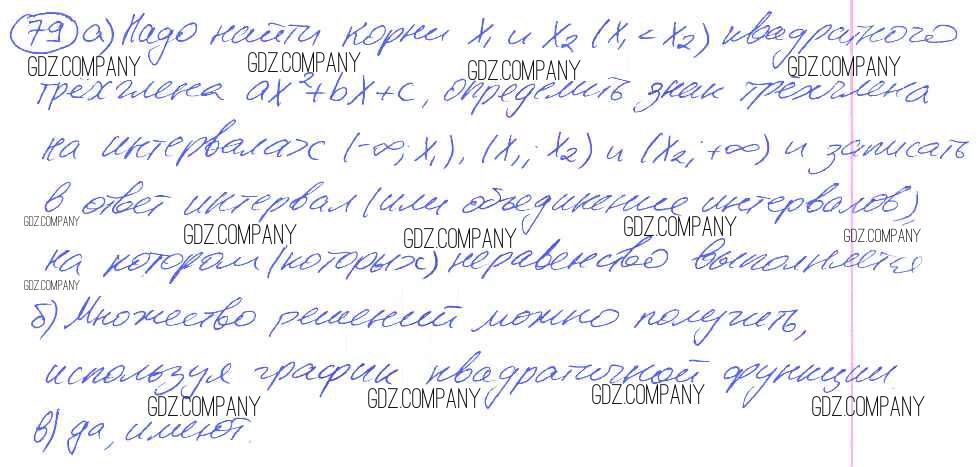 79 а) Надо найти корни x₁ и x₂ (x₁ < x₂) квадратного
GDZ.COMPANY GDZ.COMPANY GDZ.COMPANY GDZ.COMPANY
трёхчлена ax²+bx+c, определить знак трёхчлена
на интервалах (-∞; x₁), (x₁; x₂) и (x₂; +∞) и записать
в ответ интервал (или объединение интервалов),
GDZ.COMPANY GDZ.COMPANY GDZ.COMPANY GDZ.COMPANY GDZ.COMPANY
на котором (которых) неравенство выполняется
GDZ.COMPANY
б) Множество решений можно получить,
используя график квадратичной функции.
GDZ.COMPANY GDZ.COMPANY GDZ.COMPANY GDZ.COMPANY
в) да, имеют.